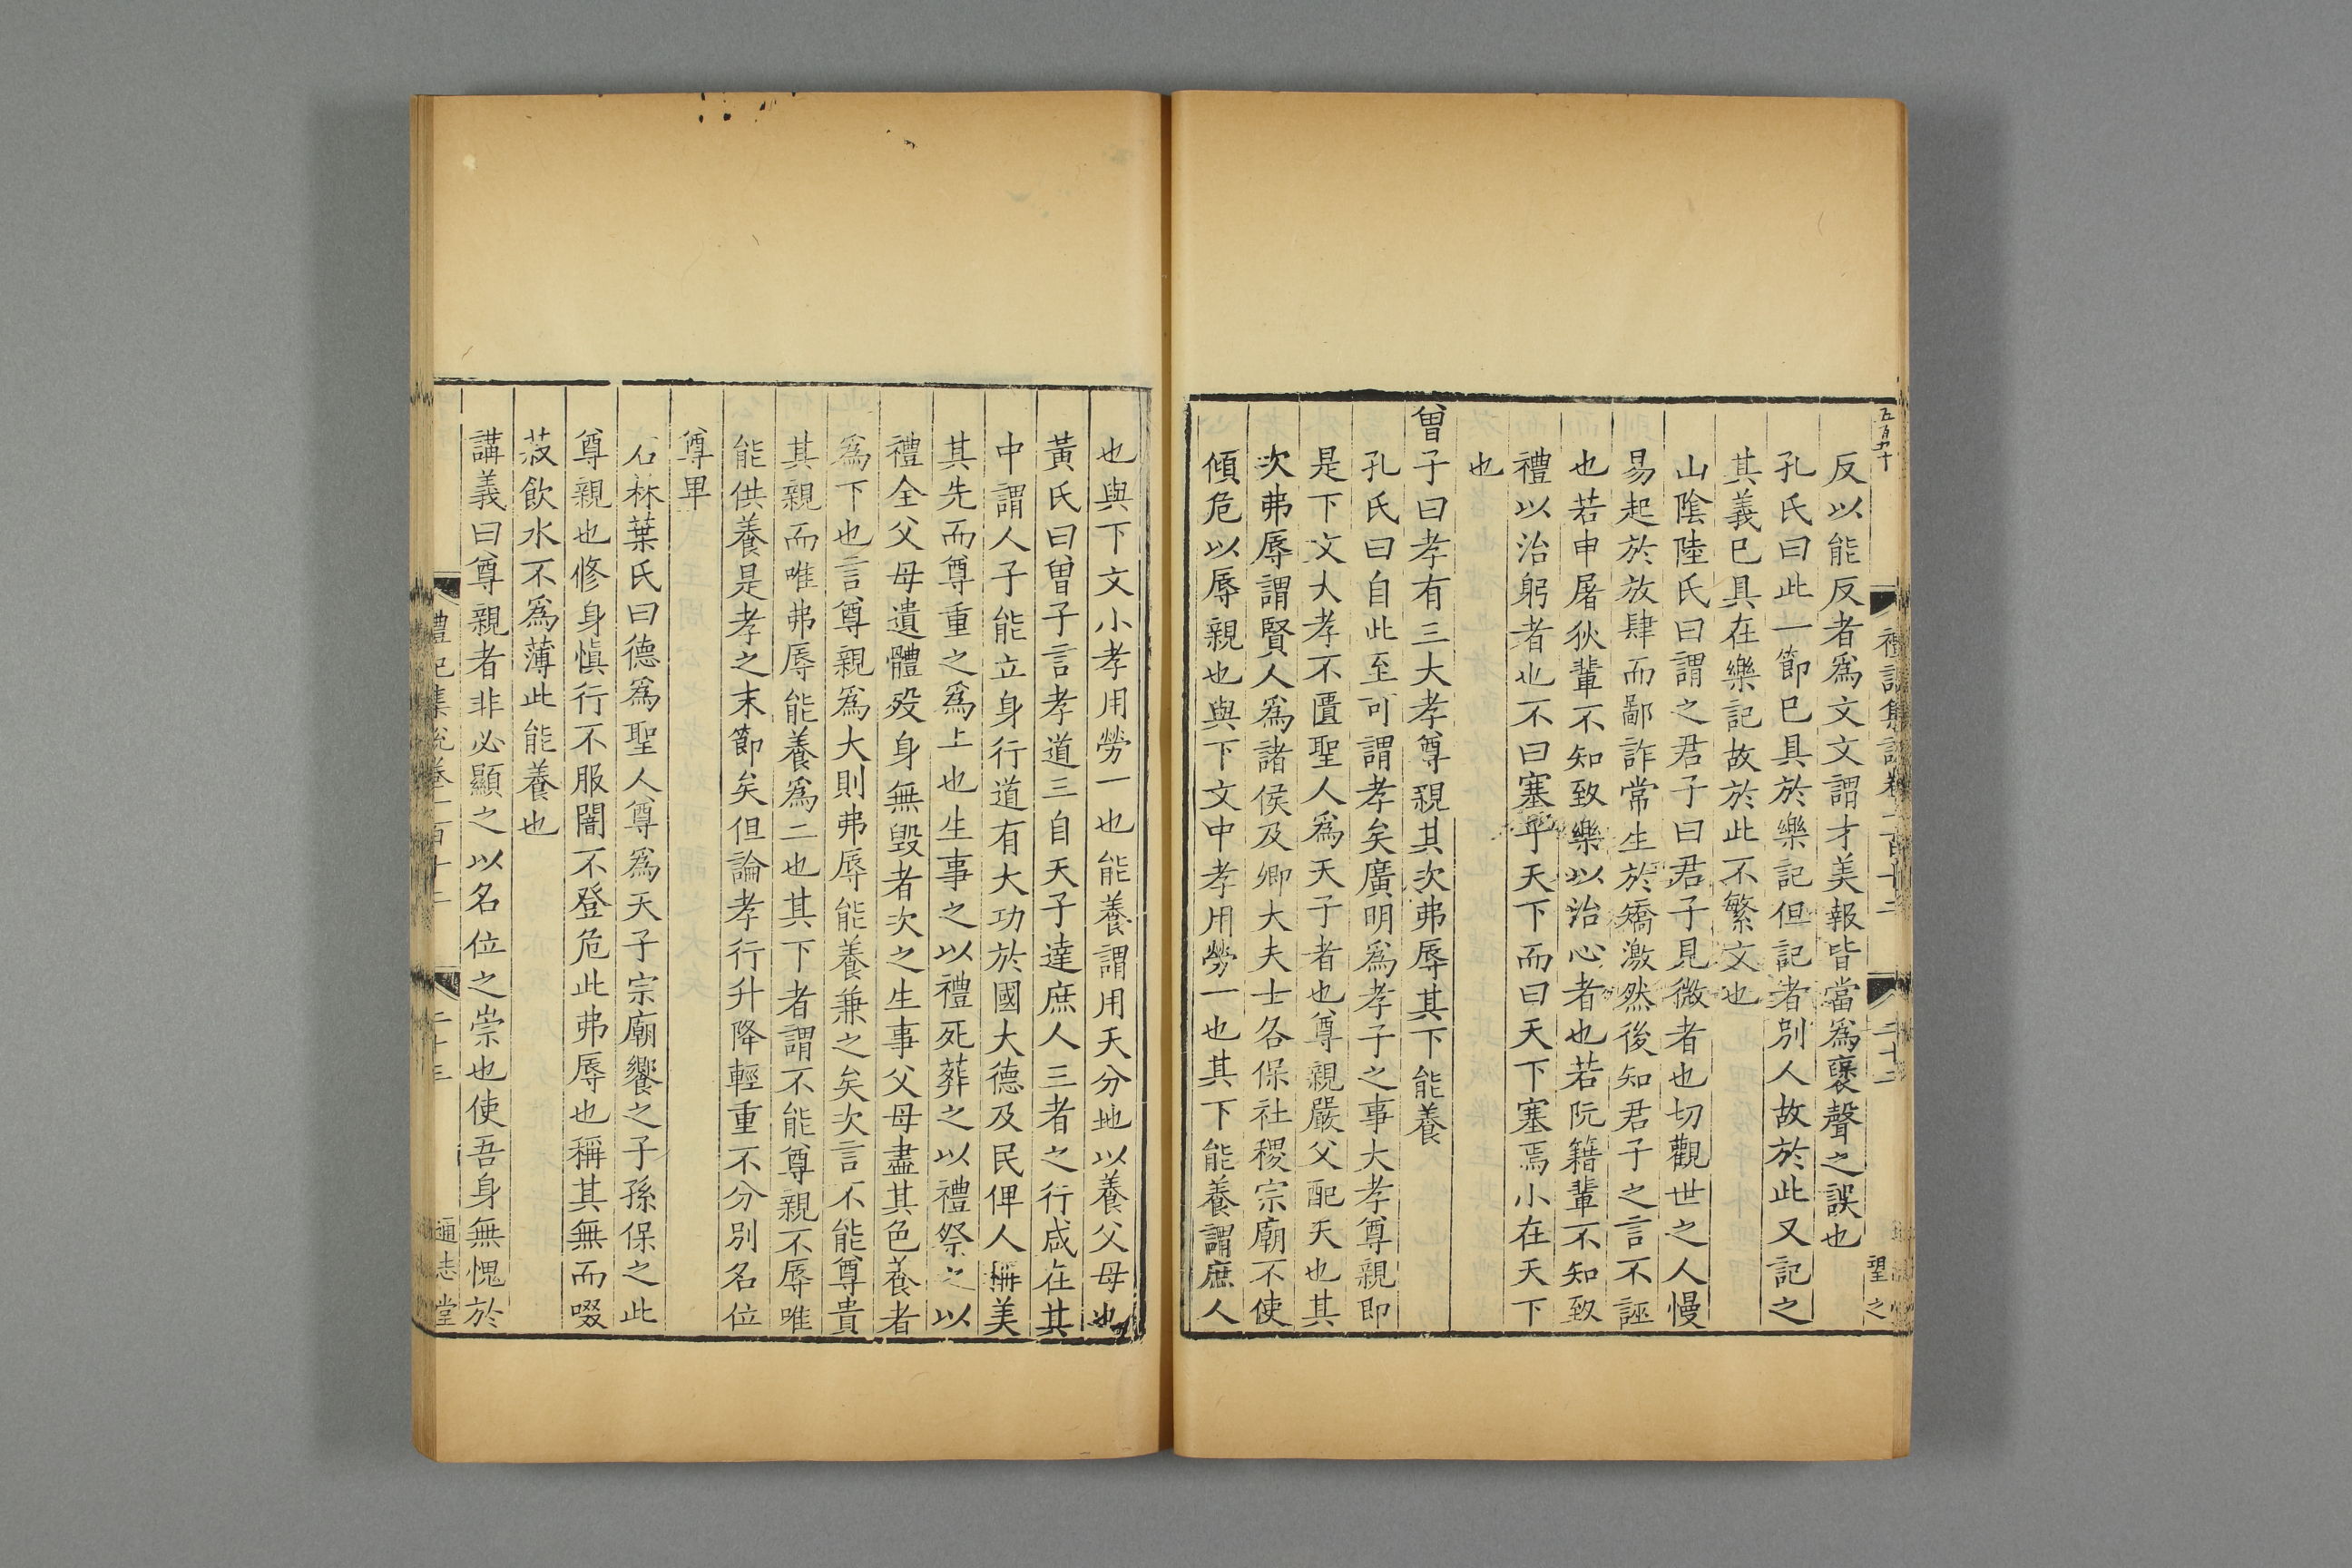 五百九十
禮記集說卷一百十二
二十二
望之
反以能反者爲文文謂才美報皆當爲襃聲之誤也
孔氏曰此一節已具於樂記但記者別人故於此又記之
其義已具在樂記故於此不繁文也
山陰陸氏曰謂之君子曰君子見微者也切觀世之人慢
易起於放肆而鄙詐常生於矯激然後知君子之言不誣
也若申屠狄輩不知致樂以治心者也若阮籍輩不知致
禮以治躬者也不曰塞乎天下而曰天下塞焉小在天下
也
曾子曰孝有三大孝尊親其次弗辱其下能養
孔氏曰自此至可謂孝矣廣明爲孝子之事大孝尊親即
是下文大孝不匱聖人爲天子者也尊親嚴父配天也其
次弗辱謂賢人爲諸侯及卿大夫士各保社稷宗廟不使
傾危以辱親也與下文中孝用勞一也其下能養謂庶人
也與下文小孝用勞一也能養謂用天分地以養父母也
黃氏曰曾子言孝道三自天子達庶人三者之行咸在其
中謂人子能立身行道有大功於國大德及民俾人稱美
其先而尊重之爲上也生事之以禮死葬之以禮祭之以
禮全父母遺體歿身無毀者次之生事父母盡其色養者
爲下也言尊親爲大則弗辱能養兼之矣次言不能尊貴
其親而唯弗辱能養爲二也其下者謂不能尊親不辱唯
能供養是孝之末節矣但論孝行升降輕重不分別名位
尊卑
石林葉氏曰德爲聖人尊爲天子宗廟饗之子孫保之此
尊親也修身愼行不服闇不登危此弗辱也稱其無而啜
菽飲水不爲薄此能養也
講義曰尊親者非必顯之以名位之崇也使吾身無愧於
禮記集說卷一百十二
二十三
通志堂